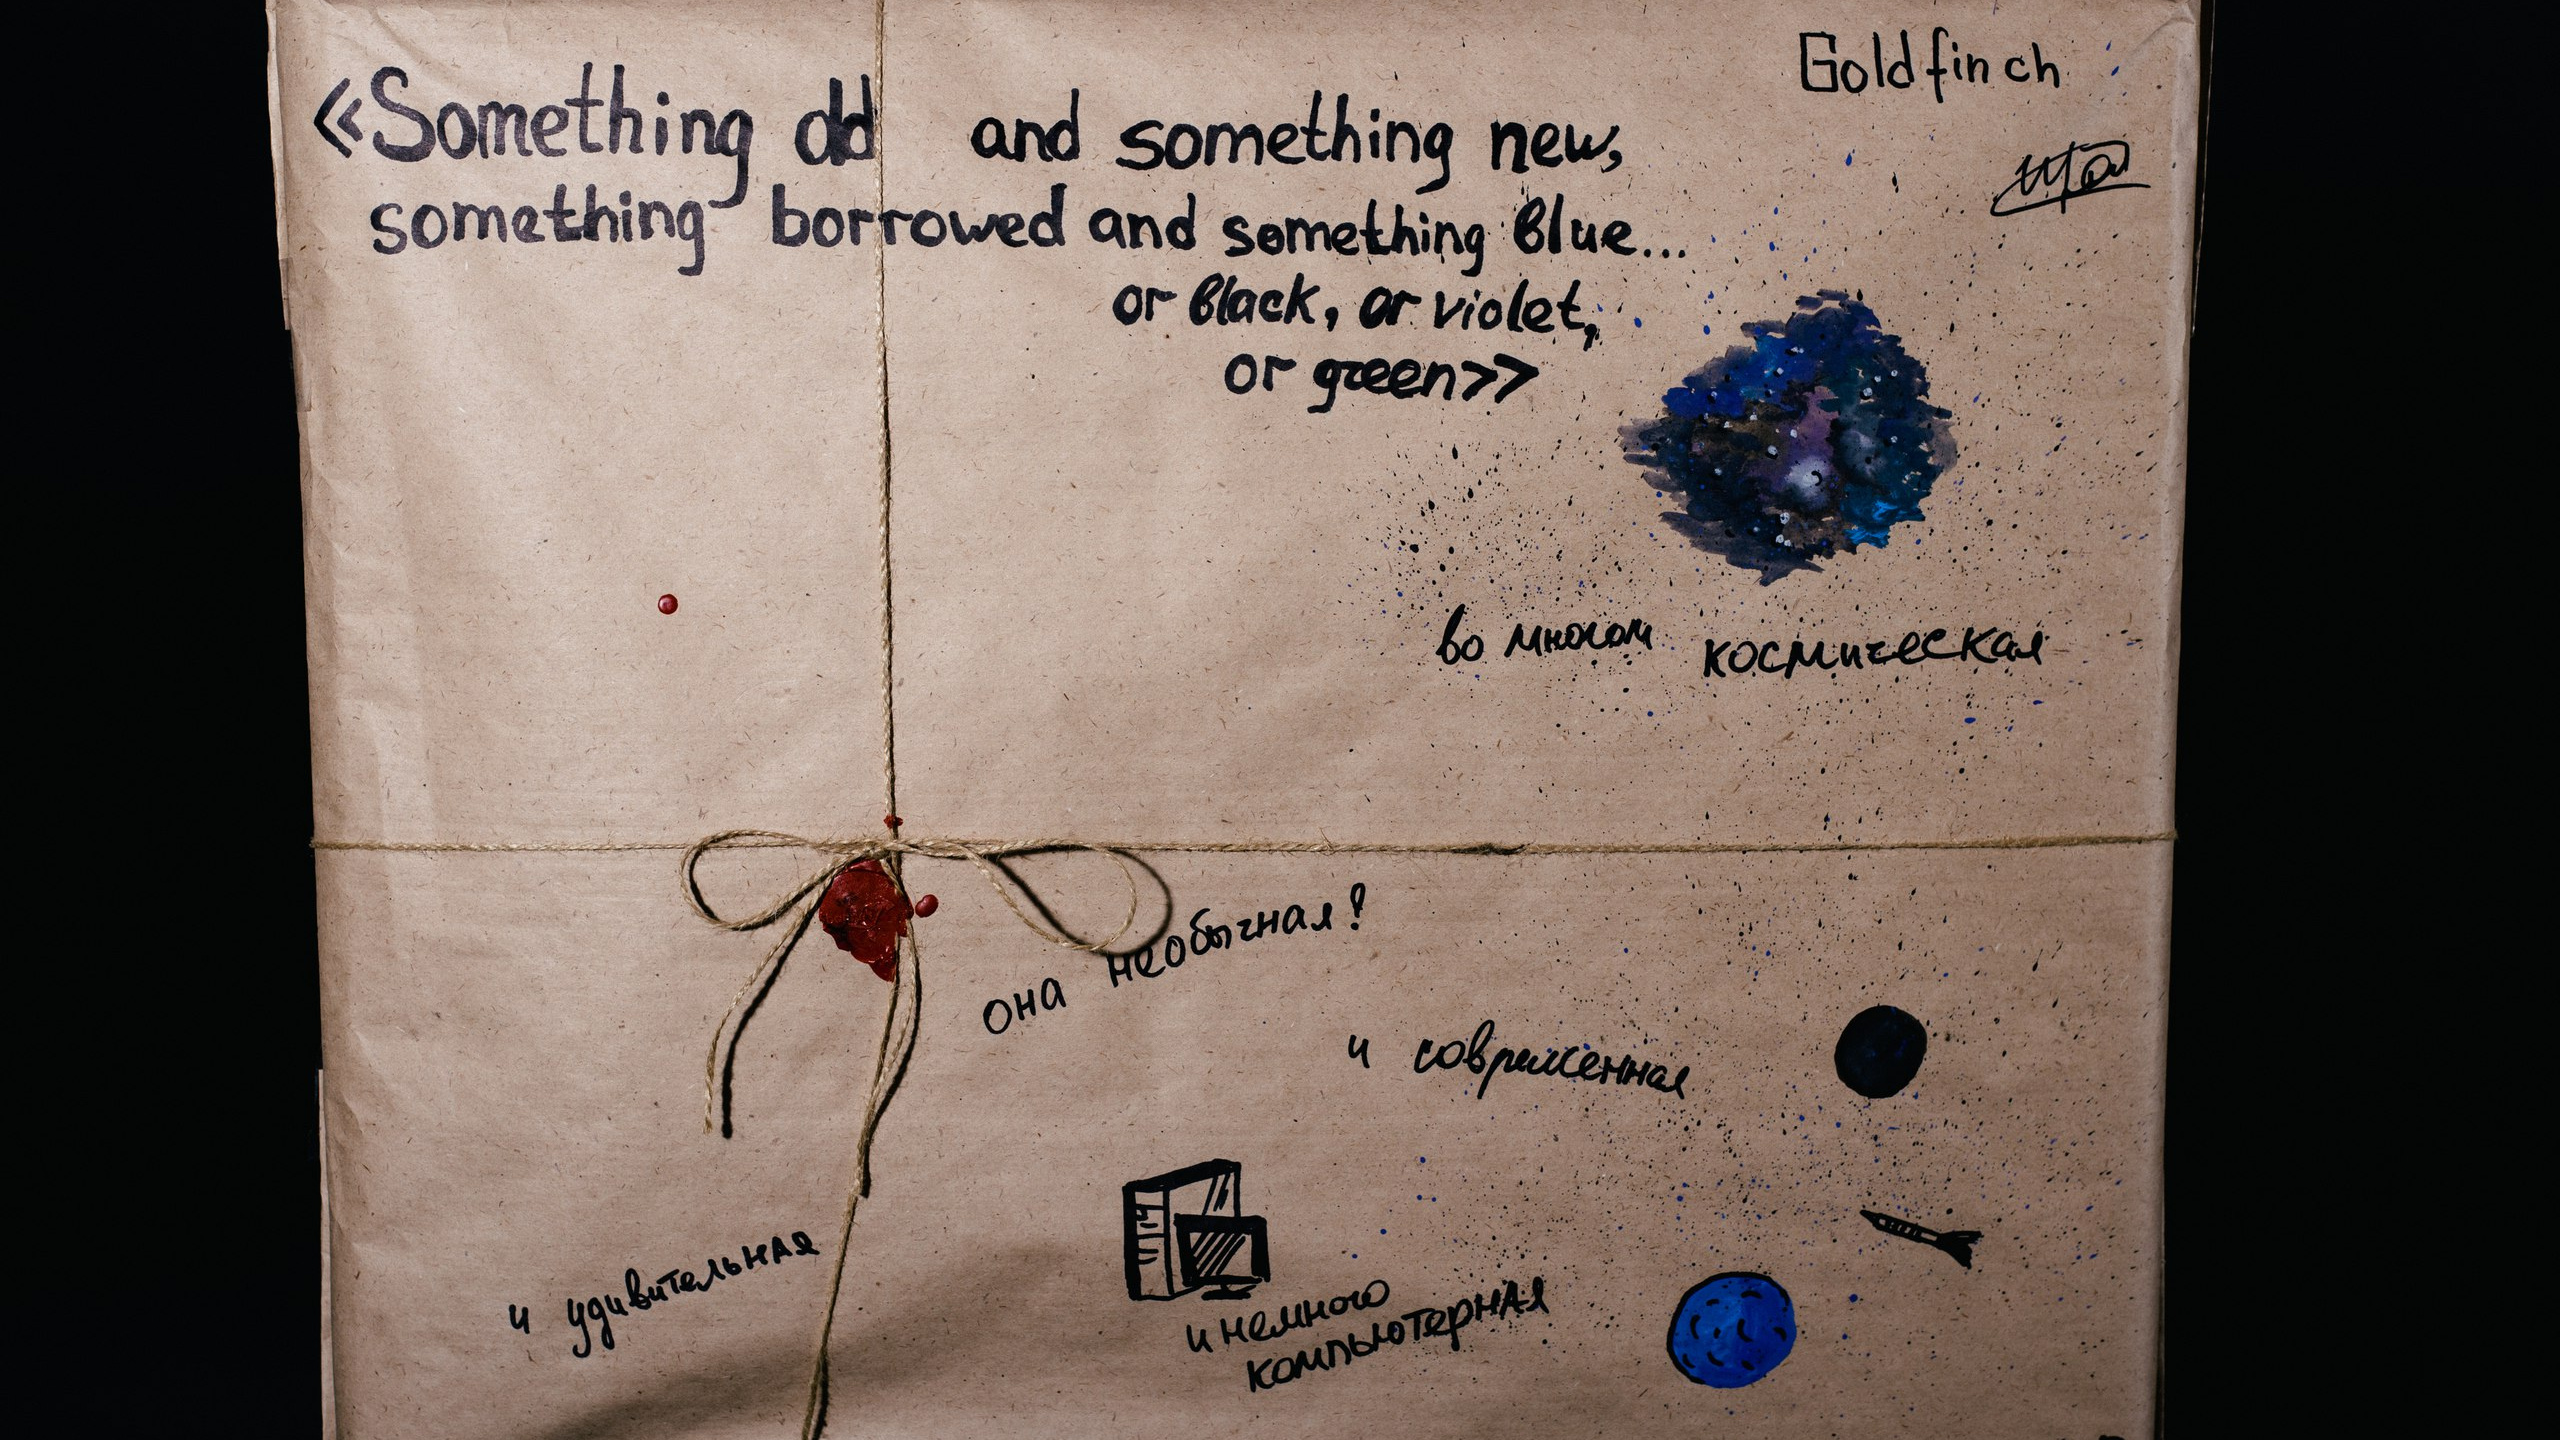 Goldfinch
«Something old and something new,
something borrowed and something blue...
or black, or violet,
or green>>
во многом космическая
она необычная!
и современная
и удивительная
и немного
компьютерная